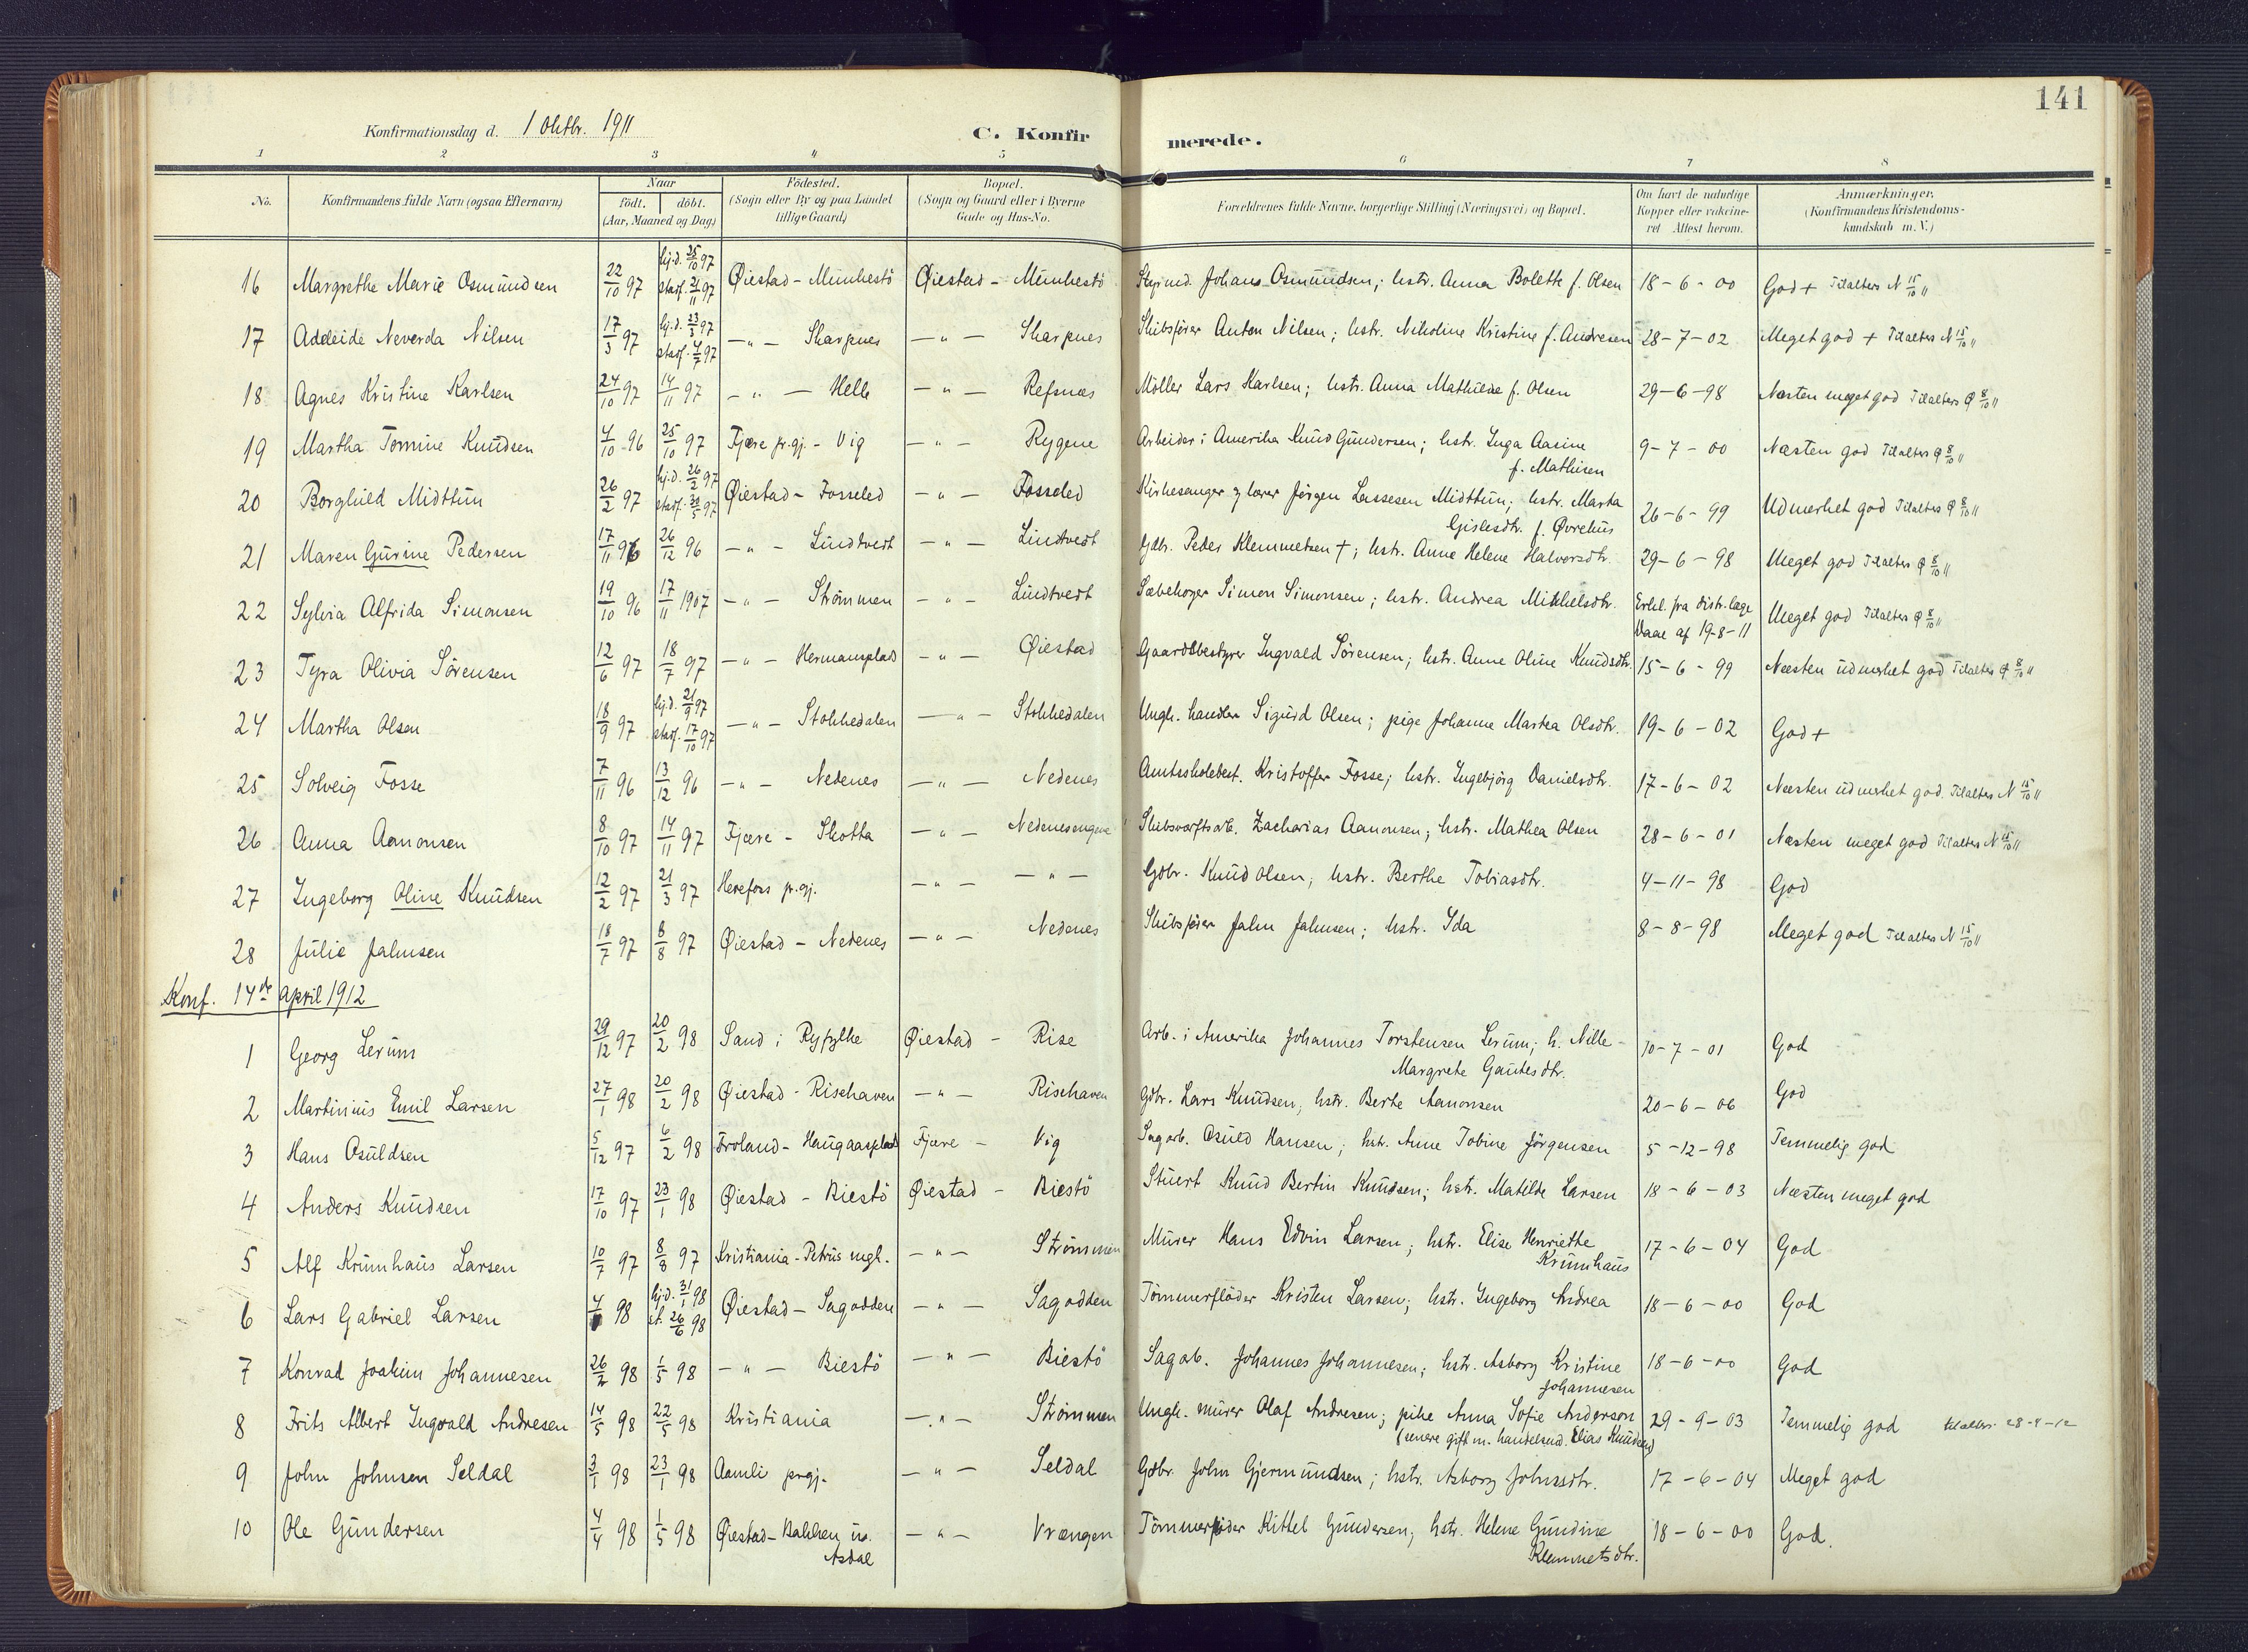 141
Konfirmationsdag d. 1 Oktbr. 1911
C. Konfirmerede.
1 2 3 4 5 6 7 8
No. Konfirmandens fulde Navn (ogsaa Efternavn) Naar födt. döbt. (Aar, Maaned og Dag) Födested. (Sogn eller By og paa Landet tillige Gaard) Bopæl. (Sogn og Gaard eller i Byerne Gade og Hus-No. Forældrenes fulde Navne, borgerlige Stilling (Næringsvei) og Bopæl. Om havt de naturlige Kopper eller vakcineret Attest herom. Anmærkninger. (Konfirmandens Kristendomskundskab m. V.)
16 Margrethe Marie Osmundsen 22/10 97 hj.d. 25/10 97 stadf. 21/11 97 Øiestad - Munkestö Øiestad - Munkestö Styrmd. Johans Osmundsen; hstr. Anna Bolette f. Olsen 18-6-00 God + Tilalters N 15/10 "
17 Adeleide Neverda Nilsen 17/3 97 hj.d. 23/3 97 stadf. 4/7 97 - " - Skarpnes - " - Skarpnes Skibsfører Anton Nilsen; hstr. Nikoline Kristine f. Andresen 28-7-02 Meget god + Tilalters N 15/10 "
18 Agnes Kristine Karlsen 24/10 97 14/11 97 - " - Helle - " - Refsnæs Møller Lars Karlsen; hstr. Anna Mathilde f. Olsen 29-6-98 Næsten meget god Tilalters Ø 8/10 "
19 Martha Tomine Knudsen 4/10 96 25/10 97 Fjære pr.gj. - Vig - " - Rygene Arbeider i Amerika Knud Gundersen; hstr. Inga Aasine f. Mathisen 9-7-00 Næsten god Tilalters Ø 8/10 "
20 Borghild Midttun 26/2 97 hj.d. 26/2 97 stadf. 30/5 97 Øiestad - Fosseled - " - Fosseled Kirkesanger og lærer Jörgen Lassesen Midttun; hstr. Marta Gislesdtr. f. Øvrehus 26-6-99 Udmerket god Tilalters Ø 8/10 "
21 Maren Gurine Pedersen 17/11 96 26/12 96 - " - Lindtvedt - " - Lindtvedt Gdbr. Peder Klemmetsen +; hstr. Anne Helene Halvorsdtr. 29-6-98 Meget god Tilalters Ø 8/10 "
22 Sylvia Alfrida Simonsen 19/10 96 17/11 1907 - " - Strömmen - " - Lindtvedt Sæbekoger Simon Simonsen; hstr. Andrea Mikkelsdtr. Erkl. fra distr.læge Vaae af 19-8-11 Meget god Tilalters Ø 8/10 "
23 Tyra Olivia Sörensen 12/6 97 18/7 97 - " - Hermansplads - " - Øiestad Gaardsbestyrer Ingvald Sörensen; hstr. Anne Oline Knudsdtr. 15-6-99 Næsten udmerket god Tilalters Ø 8/10 "
24 Martha Olsen 18/9 97 hj.d. 21/9 97 stadf. 17/10 97 - " - Stokkedalen - " - Stokkedalen Ungk. handler Sigurd Olsen; pige Johanne Martea Olsdtr. 19-6-02 God +
25 Solveig Fosse 7/11 96 13/12 96 - " - Nedenes - " - Nedenes Amtsskolebest. Kristoffer Fosse; hstr. Ingebjörg Danielsdtr. 17-6-02 Næsten udmerket god. Tilalters N 15/10 "
26 Anna Aanonsen 8/10 97 14/11 97 Fjære - Skotta - " - Nedenesengene Skibsværftsarb. Zacharias Aanonsen; hstr. Mathea Olsen 28-6-01 Næsten meget god Tilalters N 15/10 "
27 Ingeborg Oline Knudsen 12/2 97 21/3 97 Herefoss p.gj. - " - - " - Gdbr. Knud Olsen; hstr. Berthe Tobiasdtr. 4-11-98 God
28 Julie Jalmsen 18/7 97 8/8 97 Øiestad - Nedenes - " - Nedenes Skibsfører Jalm Jalmsen; hstr. Ida 8-8-98 Meget god Tilalters N 15/10 "
Konf. 14de April 1912
1 Georg Lerum 29/12 97 20/2 98 Sand i Ryfylke Øiestad - Rise Arb. i Amerika Johannes Torstensen Lerum; h. Nille - Margrete Gautesdtr. 10-7-01 God
2 Martinius Emil Larsen 27/1 98 20/2 98 Øiestad - Risehaven - " - Risehaven Gdbr. Lars Knudsen; hstr. Berte Aanonsen 20-6-06 God
3 Hans Osuldsen 5/12 97 6/2 98 Froland - Haugaasplads Fjære - Vig Sagarb. Osuld Hansen; hstr. Anne Tobine Jörgensen 5-12-98 Temmelig god
4 Anders Knudsen 17/10 97 23/1 98 Øiestad - Biestö Øiestad - Biestö Stuert Knud Bertin Knudsen; hstr. Matilde Larsen 18-6-03 Næsten meget god
5 Alf Krumhaus Larsen 10/7 97 8/8 97 Kristiania - Petrus mgl. - " - Strömmen Murer Hans Edvin Larsen; hstr. Elise Henriette Krumhaus 17-6-04 God
6 Lars Gabriel Larsen 4/ 98 hj.d. 31/1 98 st. 26/6 98 Øiestad - Sagodden - " - Sagodden Tömmerflöder Kristen Larsen; hstr. Ingeborg Andrea 18-6-00 God
7 Konrad Joakim Johannesen 26/2 98 1/5 98 - " - Biestö - " - Biestö Sagarb. Johannes Johannesen; hstr. Asborg Kristine Johannesen 18-6-00 God
8 Frits Albert Ingvald Andresen 14/5 98 22/5 98 Kristiania - " - Strömmen Ungk. murer Olaf Andresen; pike Anna Sofie Anderson (senere gift m. handelsmd. Elias Knudsen) 29-9-03 Temmelig god tilalters 28-4-12
9 John Johnsen Seldal 3/1 98 23/1 98 Aamli prgj. - " - Seldal Gdbr. John Gjermundsen; hstr. Asborg Johnsdtr. 17-6-04 Meget god
10 Ole Gundersen 4/4 98 1/5 98 Øiestad - Bakken u. Asdal - " - Vrængen Tömmerflöder Kittel Gundersen; hstr. Helene Gundine Klemmetsdtr. 18-6-00 God.